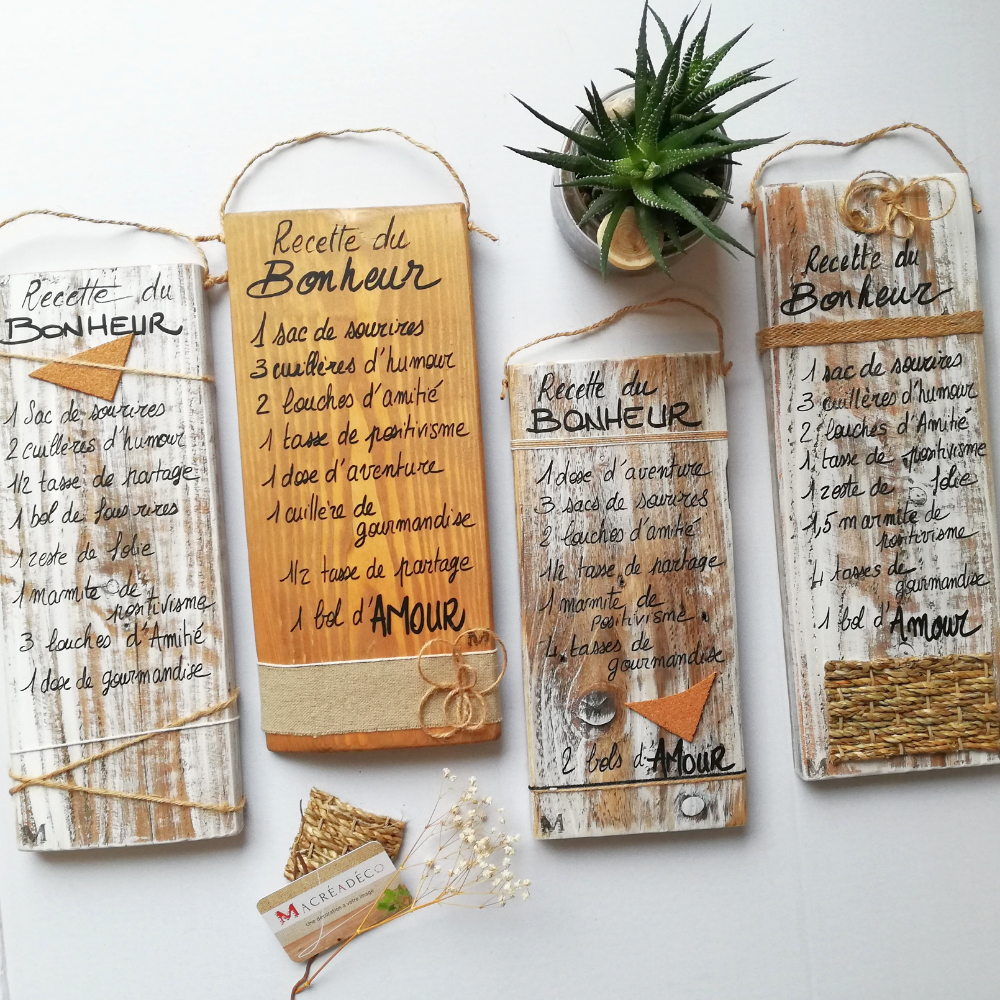 Recette du
BONHEUR
1 Sac de sourires
2 cuillères d'humour
1/2 tasse de partage
1 bol de fous rires
1 zeste de folie
1 marmite de
positivisme
3 louches d'Amitié
1 dose de gourmandise
M
Recette du
Bonheur
1 sac de sourires
3 cuillères d'humour
2 louches d'amitié
1 tasse de positivisme
1 dose d'aventure
1 cuillère de
gourmandise
1/2 tasse de partage
1 bol d'AMOUR
M
Recette du
BONHEUR
1 dose d'aventure
3 sacs de sourires
2 louches d'amitié
1/2 tasse de partage
1 marmite de
positivisme
4 tasses de
gourmandise
2 bols d'AMOUR
M
Recette du
Bonheur
1 sac de sourires
3 cuillères d'humour
2 louches d'Amitié
1 tasse de positivisme
1 zeste de folie
1,5 marmite de
positivisme
4 tasses de
gourmandise
1 bol d'Amour
MACRÉADÉCO
Une décoration à votre image